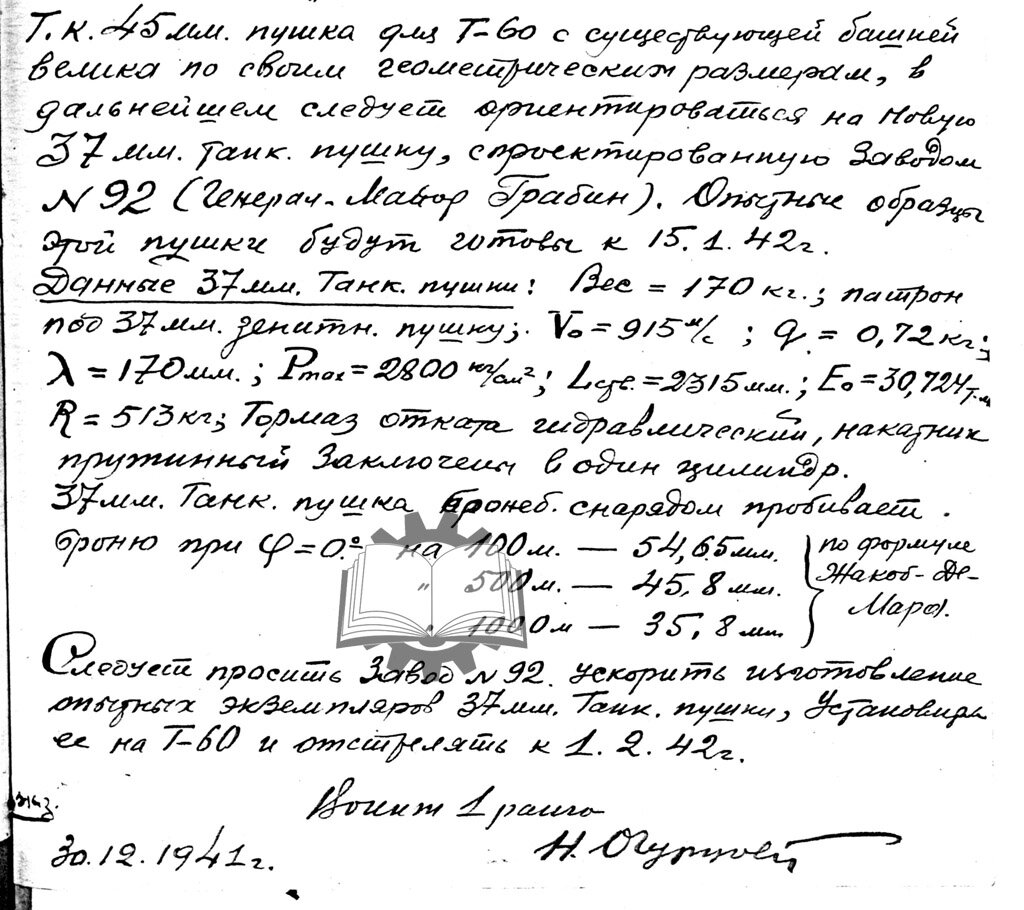 Т.к. 45 мм. пушка для Т-60 с существующей башней
велика по своим геометрическим размерам, в
дальнейшем следует ориентироваться на новую
37 мм. танк. пушку, спроектированную Заводом
N 92 (Генерал-Майор Грабин). Опытные образцы
этой пушки будут готовы к 15.1.42г.
Данные 37 мм. Танк. пушки: Вес = 170 кг.; патрон
под 37 мм. зенитн. пушку; V₀ = 915 м/с; q = 0,72 кг;
λ = 170 мм.; Pmax = 2800 кг/см²; Lств. = 2315 мм.; E₀ = 30,724 т.м
R = 513 кг; Тормаз отката гидравлический, накатник
пружинный Заключены в один цилиндр.
37 мм. Танк. пушка бронеб. снарядом пробивает
броню при φ = 0° на 100 м. — 54,65 мм. } по формуле
" 500 м. — 45,8 мм. Жакоб-Де-
" 1000 м — 35,8 мм Марр.
Следует просить Завод N 92 ускорить изготовление
опытных экземпляров 37 мм. Танк. пушки, Установить
ее на Т-60 и отстрелять к 1.2.42г.
Воент 1 ранга
30.12.1941г. Н. Огурцов